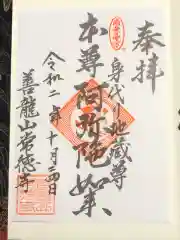 奉拝
身代り地蔵尊
本尊阿弥陀如来
令和二年十月三四日
善龍山常徳寺